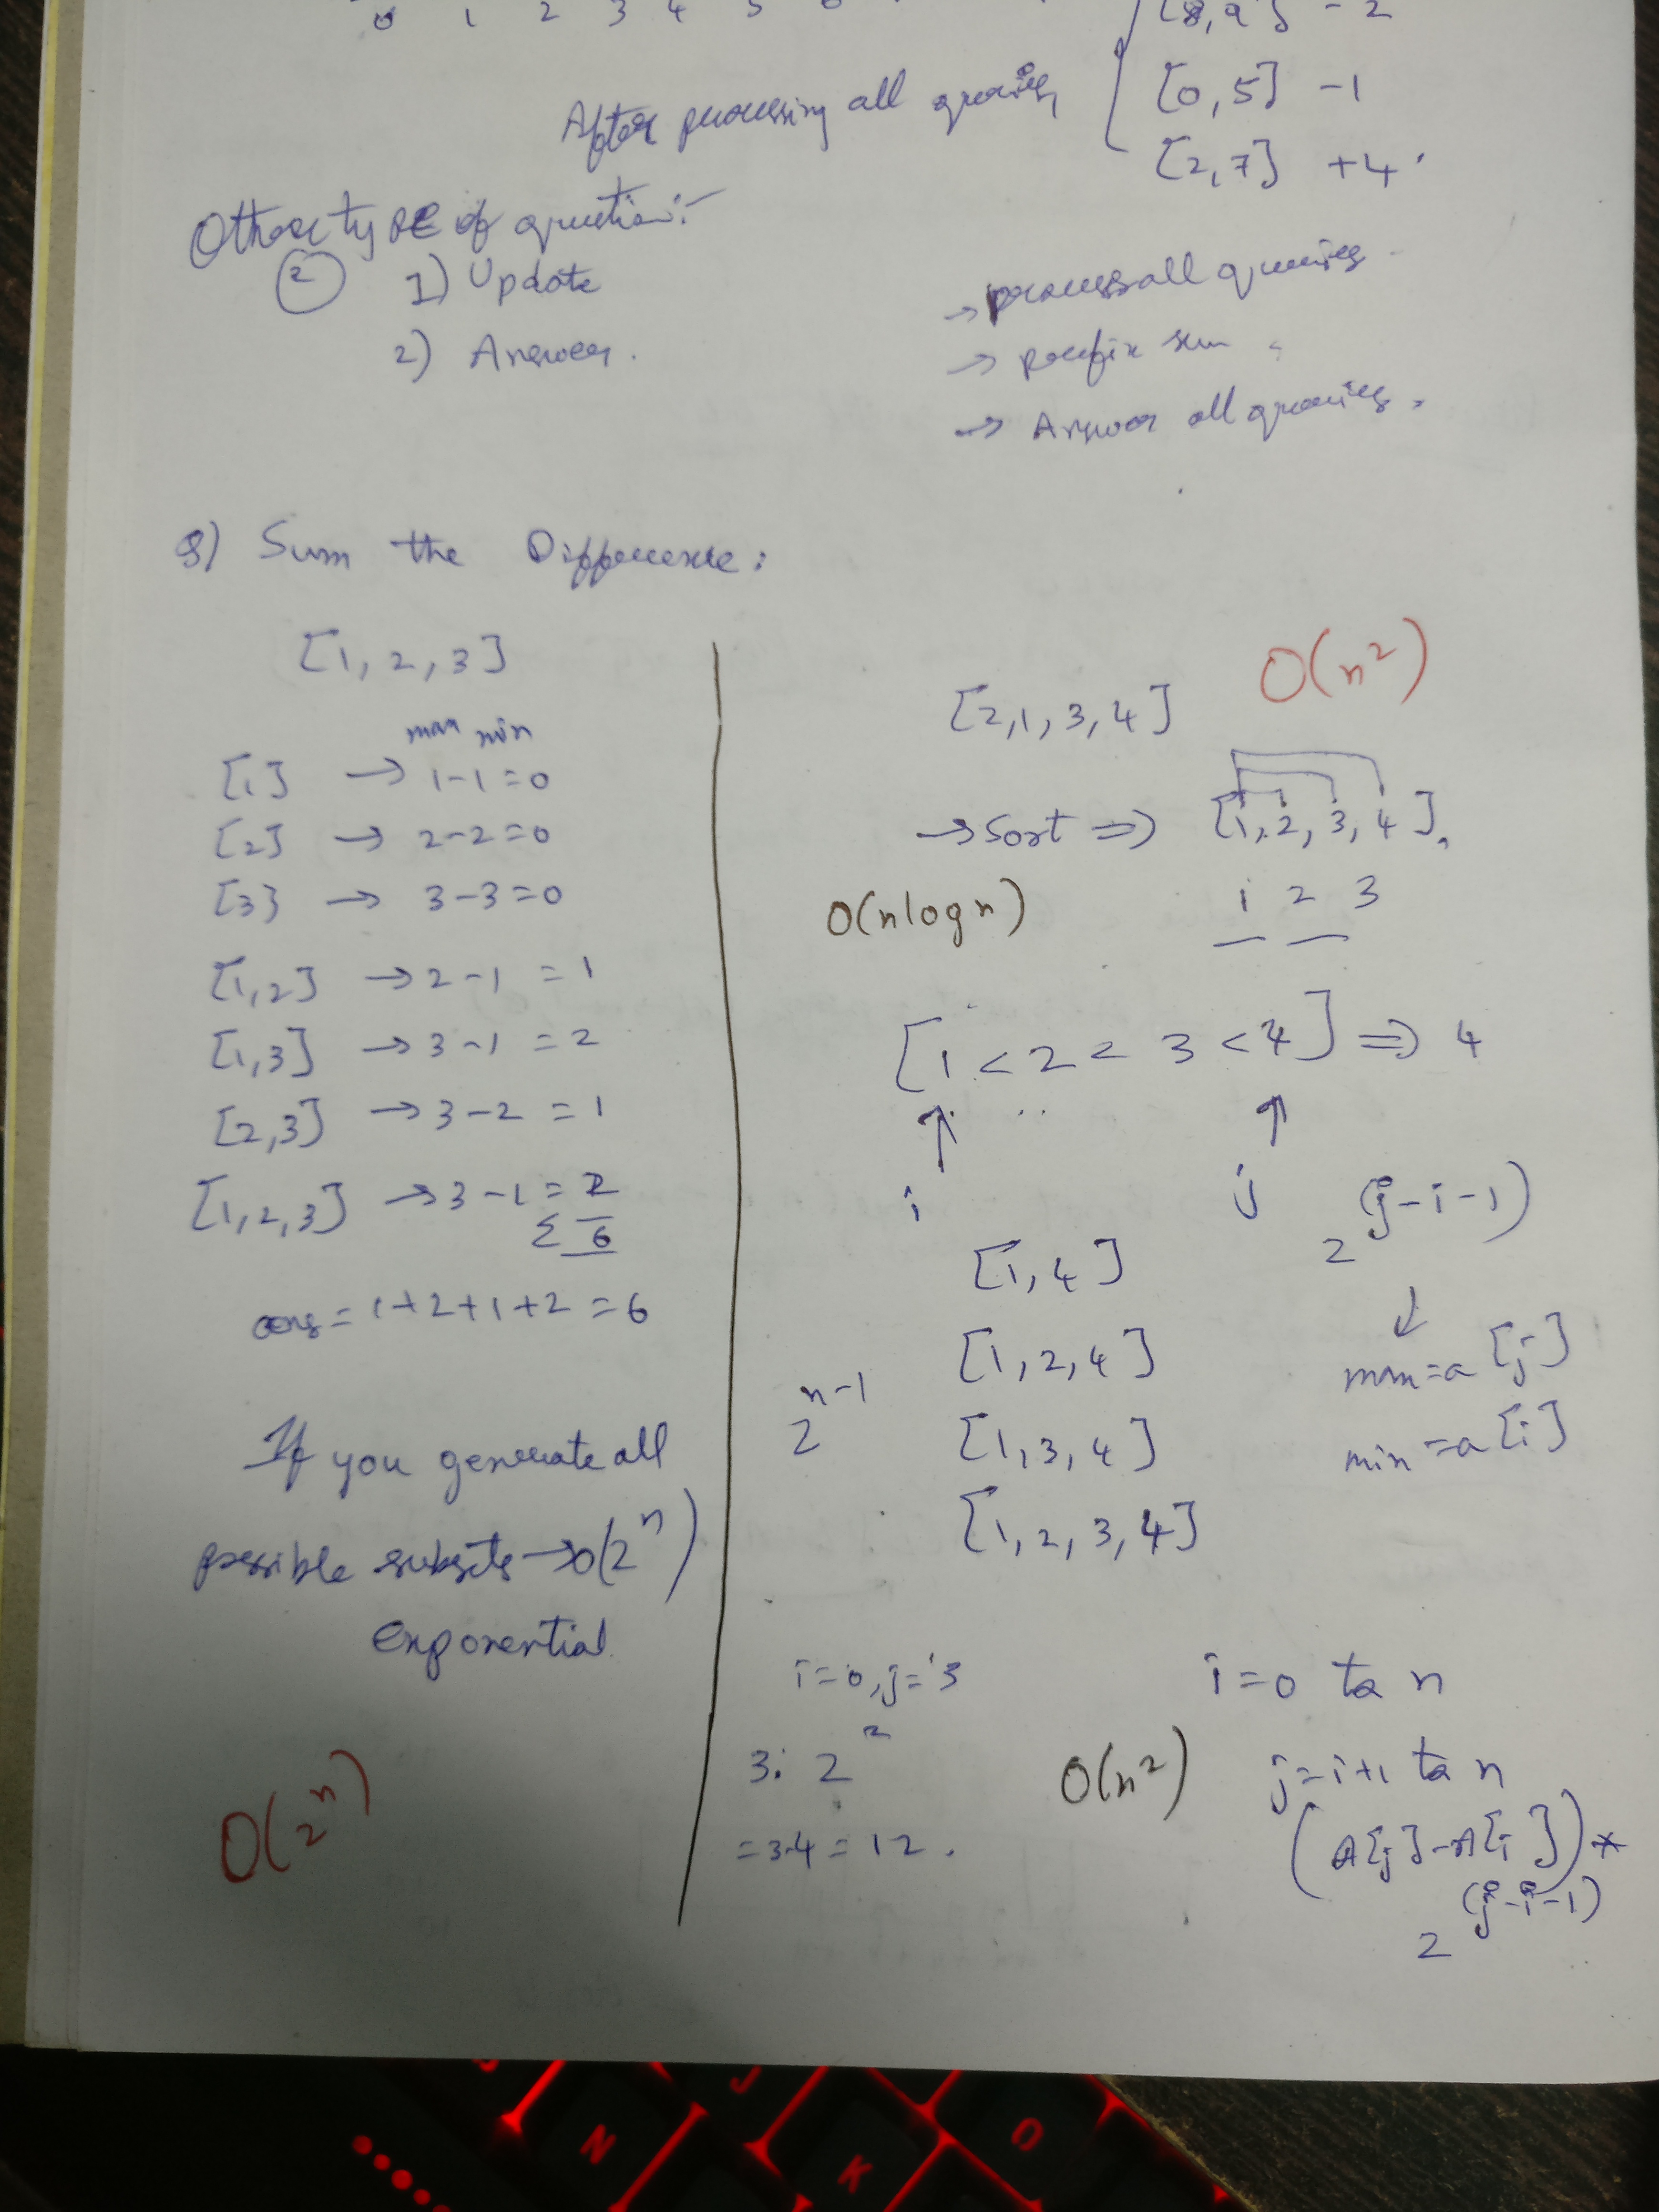 0 1 2 3 4 5
[8,9] -2
After processing all queries
[0,5] -1
[2,7] +4
Other type of question:-
2
1) Update
2) Answer.
→ process all queries
→ prefix sum
→ Answer all queries.
8) Sum the Difference:
[1, 2, 3]
max min
[1] → 1-1=0
[2] → 2-2=0
[3] → 3-3=0
[1,2] → 2-1 = 1
[1,3] → 3-1 = 2
[2,3] → 3-2 = 1
[1,2,3] → 3-1 = 2
Σ 6
ans = 1+2+1+2 = 6
If you generate all
possible subsets → O(2^n)
Exponential
O(2^n)
[2,1,3,4] O(n²)
→ Sort ⇒ [1,2,3,4].
O(nlogn) 1 2 3
[1 < 2 < 3 < 4] ⇒ 4
↑ ↑
i j
2^(j-i-1)
↓
max = a[j]
min = a[i]
[1,4]
[1,2,4]
2^n-1 [1,3,4]
[1,2,3,4]
i=0, j=3
3. 2^2
= 3.4 = 12.
O(n²)
i=0 to n
j=i+1 to n
(A[j]-A[i])*
2^(j-i-1)
N
J
K
O